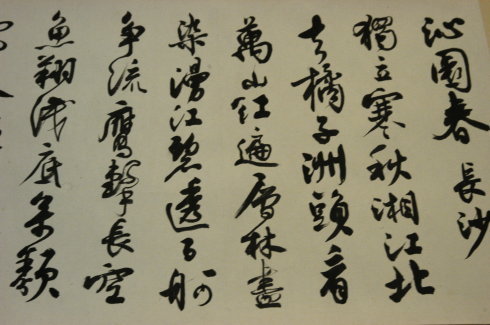 沁園春 長沙
獨立寒秋湘江北
去橘子洲頭看
萬山紅遍層林盡
染漫江碧透百舸
爭流鷹擊長空
魚翔淺底萬類